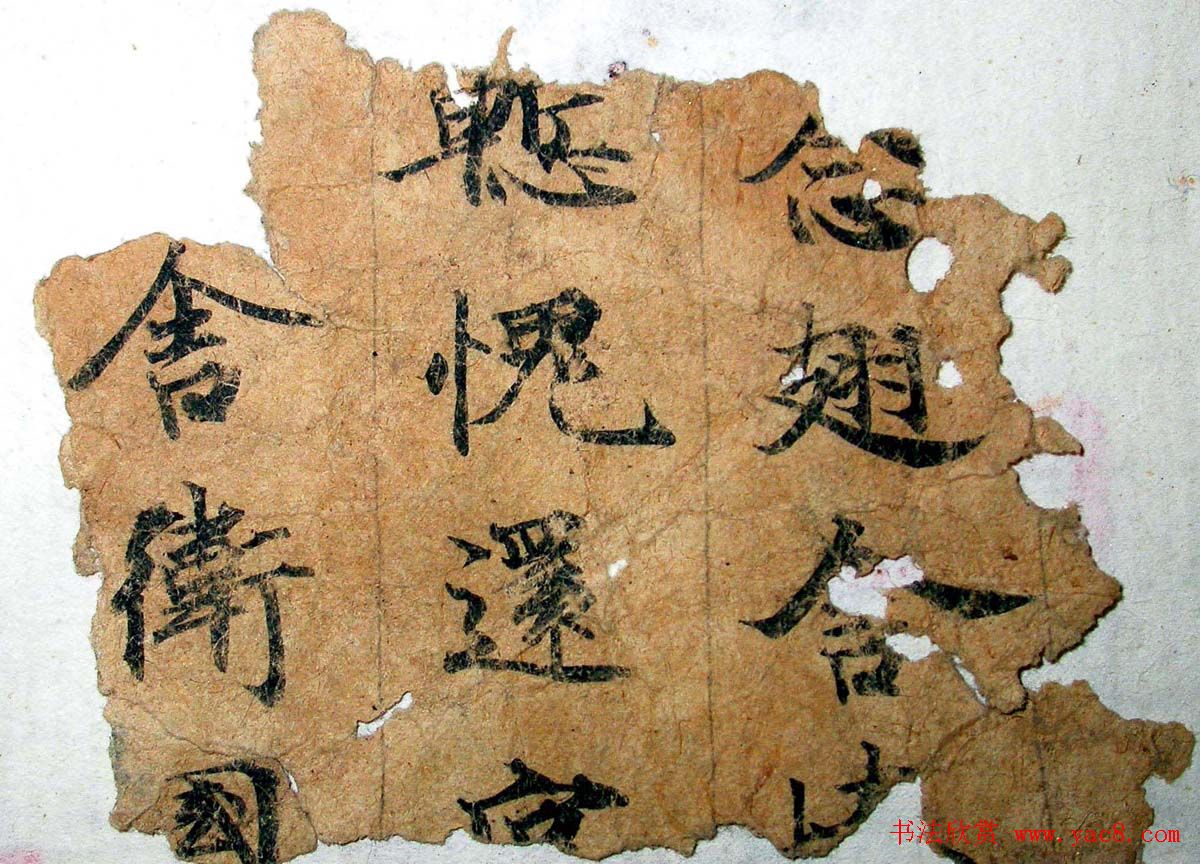 念翅舍
慙愧還
舍衛國
书法欣赏 www.yac8.com